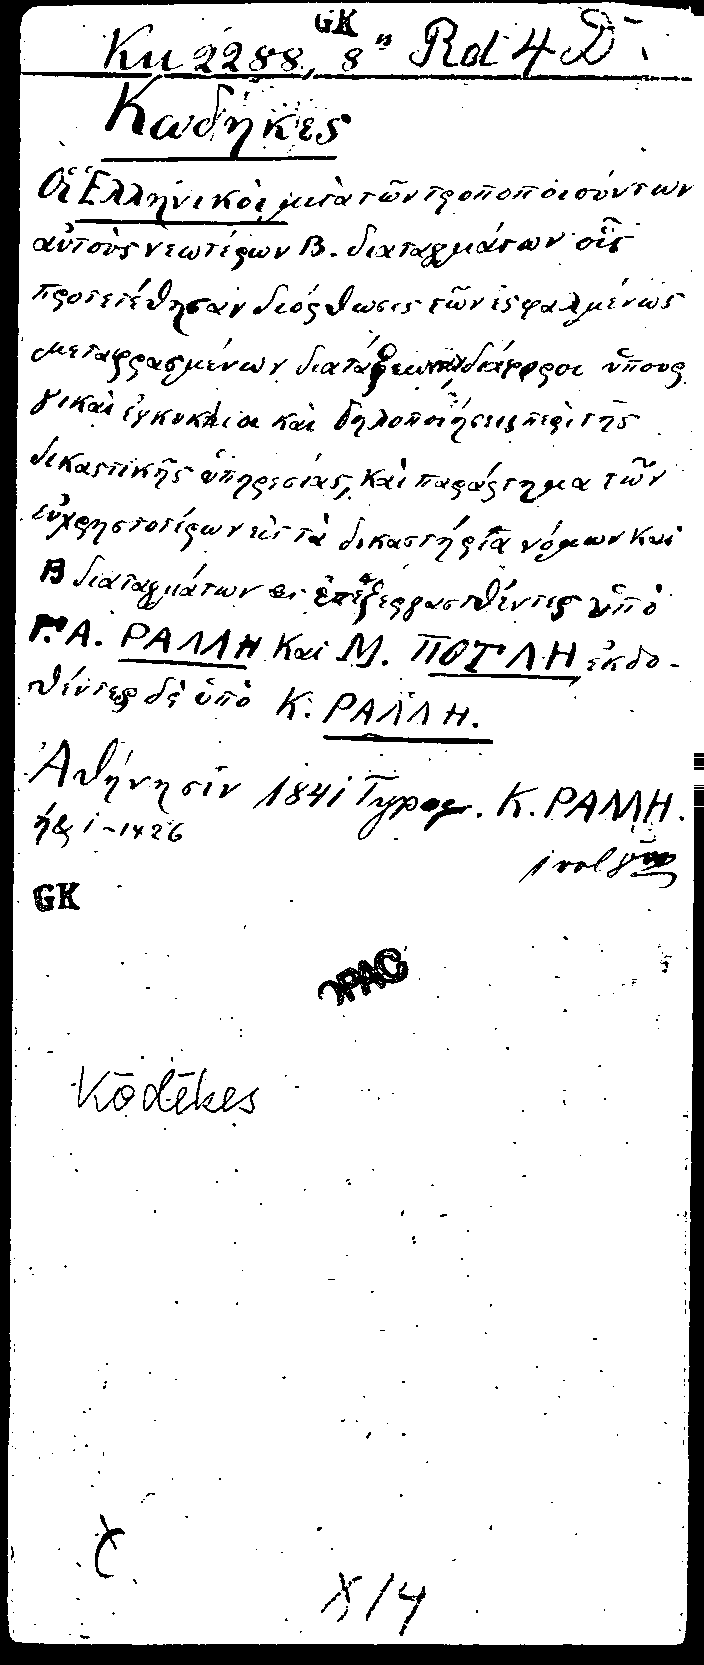 GK
Ku 2288, 8º Rd 4 D
Κωδήκες
Οἱ Ἑλληνικοὶ μετὰ τῶν τροποποιούντων
αὐτοὺς νεωτέρων Β. διαταγμάτων οἷς
προσετέθησαν διόρθωσις τῶν ἐσφαλμένως
μεταφρασμένων διατάξεων, διάφοροι ὑπουρ
γικαὶ ἐγκύκλιοι καὶ δηλοποιήσεις περὶ τῆς
δικαστικῆς ὑπηρεσίας, καὶ παράρτημα τῶν
εὐχρηστοτέρων εἰς τὰ δικαστήρια νόμων καὶ
Β διαταγμάτων οἱ ἐπεξεργασθέντες ὑπὸ
Γ. Α. ΡΑΛΛΗ καὶ Μ. ΠΟΤΛΗ ἐκδο-
θέντες δὲ ὑπὸ Κ. ΡΑΛΛΗ.
Ἀθήνησιν 1841 Τυπογ. Κ. ΡΑΛΛΗ.
1-1426
1 vol 8º
GK
OPAC
Kōdēkes
X/4